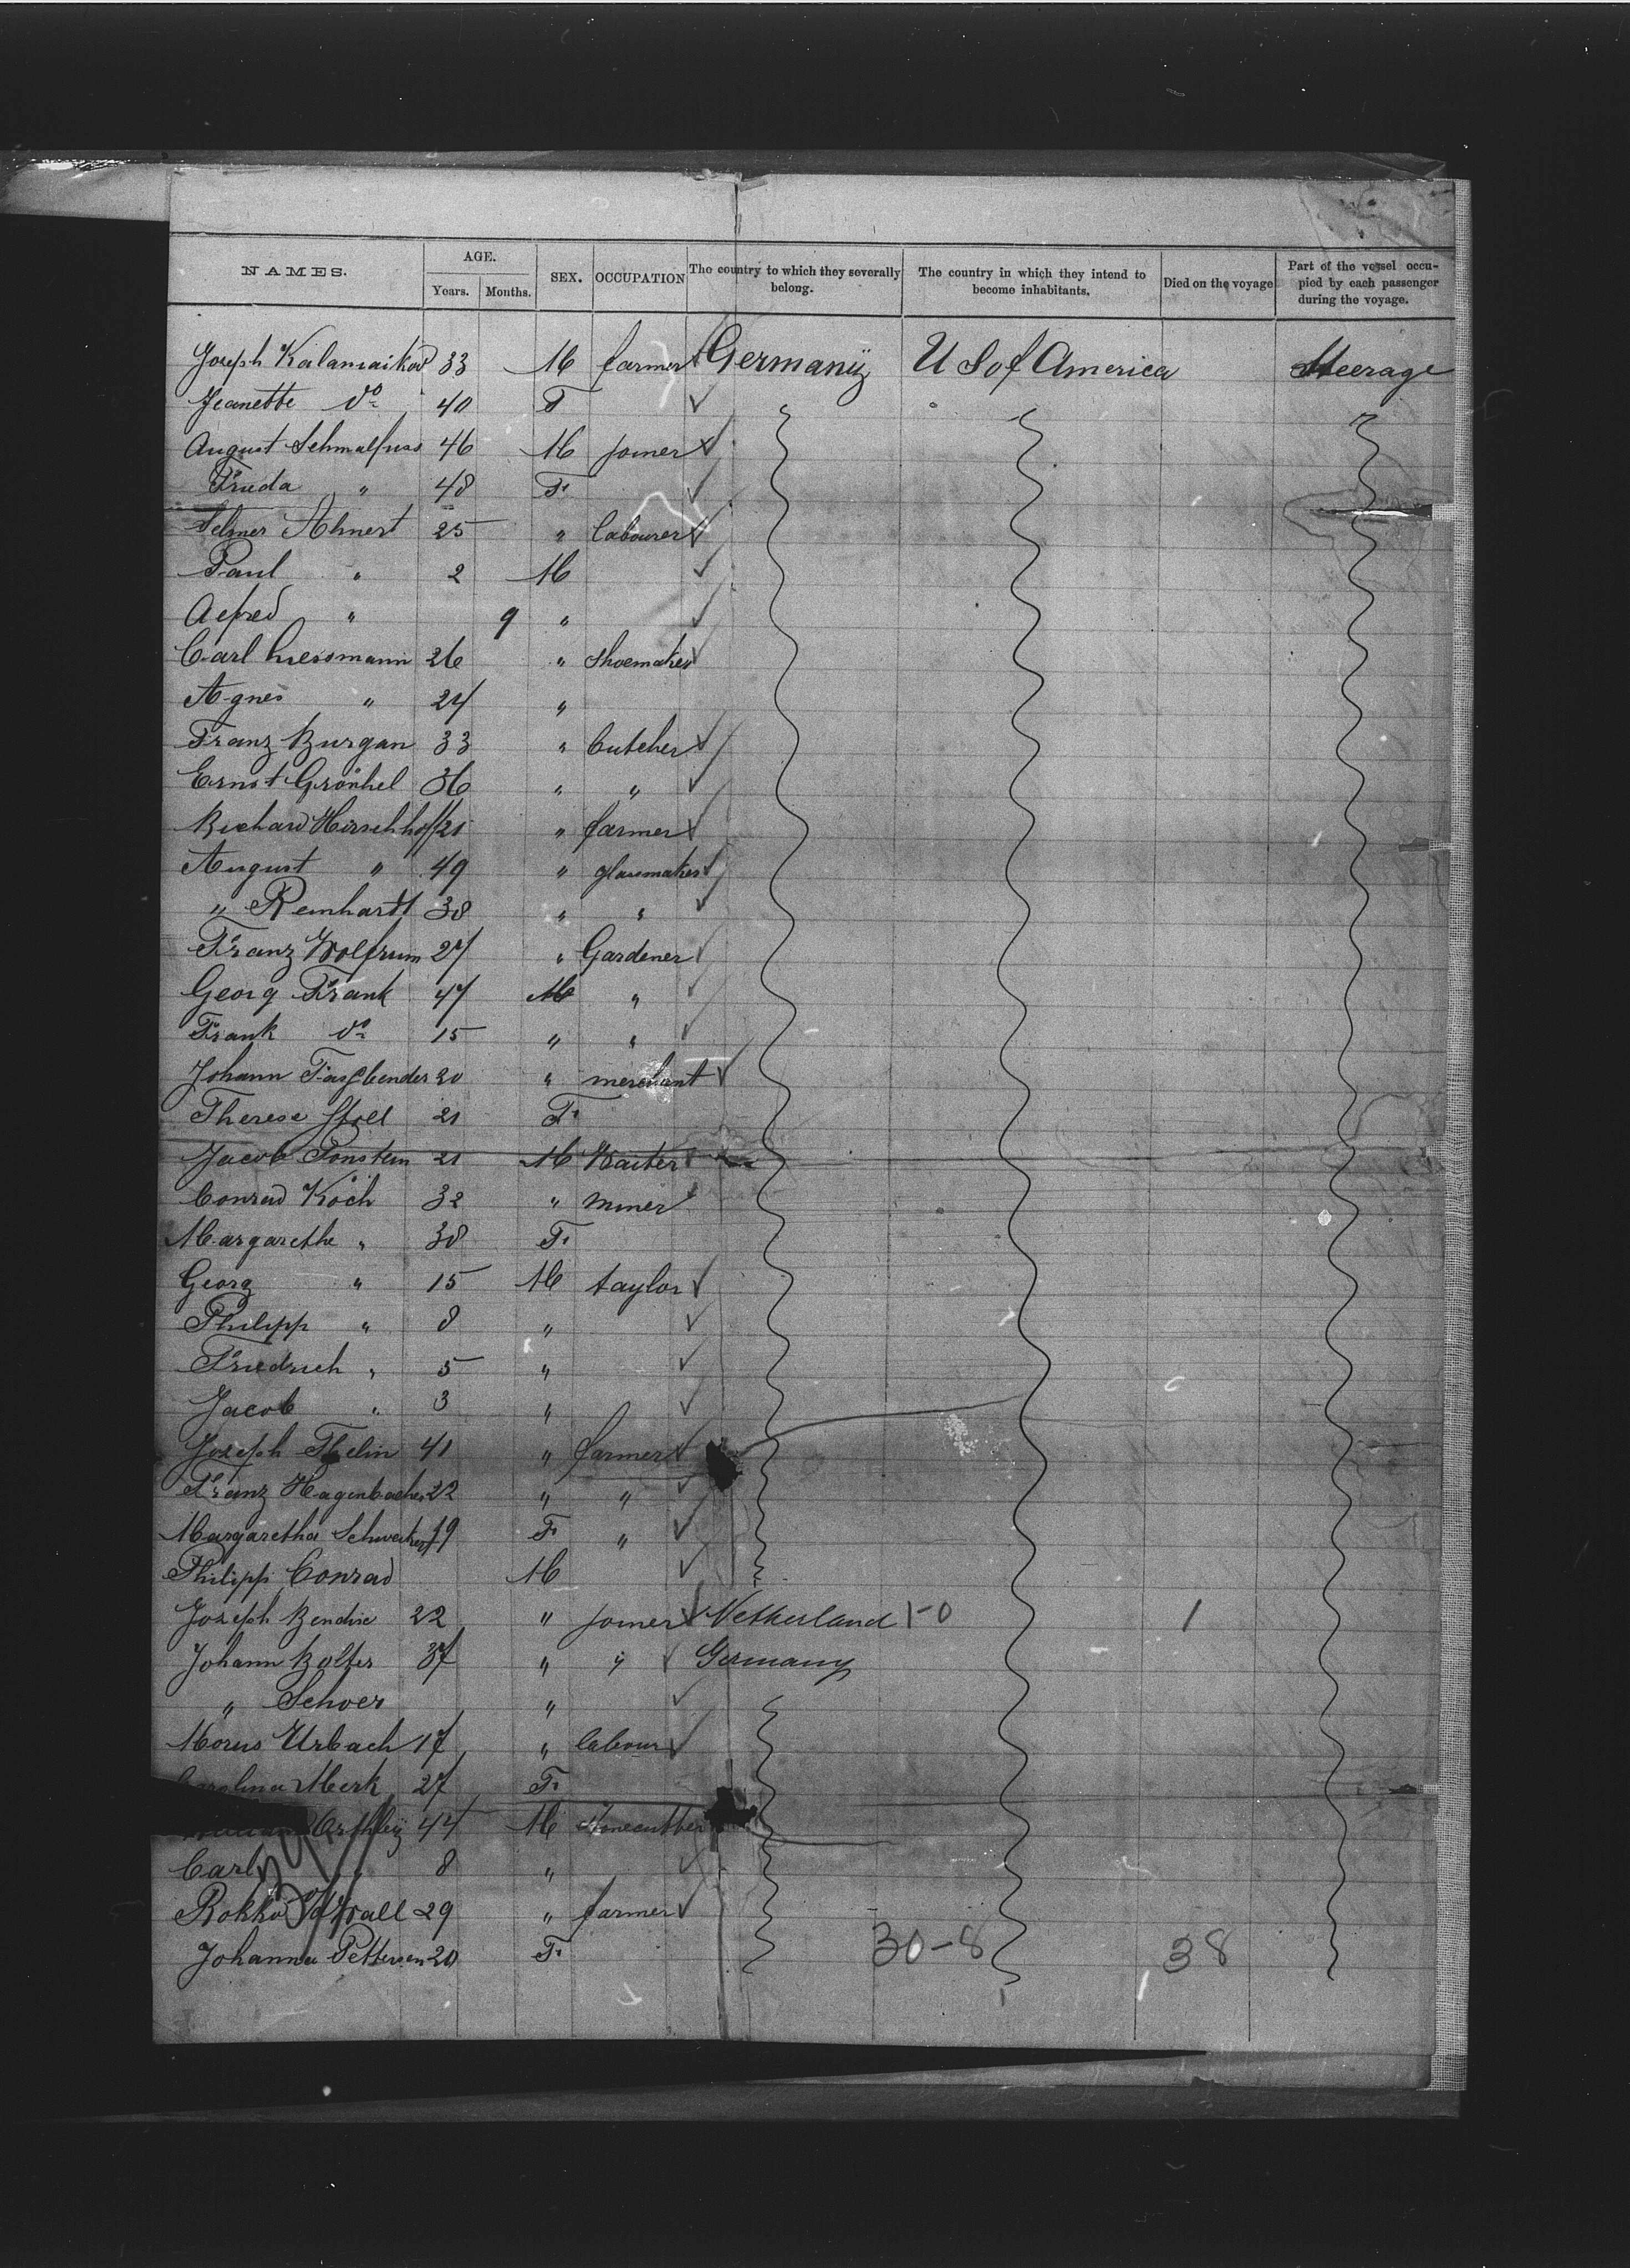 NAMES. AGE. SEX. OCCUPATION The country to which they severally belong. The country in which they intend to become inhabitants. Died on the voyage Part of the vessel occupied by each passenger during the voyage.
Years. Months.
Joseph 33 M farmer Germany U S of America Steerage
Jeanette do 40 F
August Schmalfuss 46 M joiner
Frieda " 48 F
Selmer Ahnert 25 " labourer
Paul " 2 M
Alfred " 9 "
Carl 26 " shoemaker
Agnes " 24 "
Franz Burgan 33 " butcher
Ernst Gronhel 36 " "
Richard Hirschhoff 21 " farmer
August " 49 " glasmaker
" Reinhardt 38 " "
Franz Wolfrum 27 " Gardener
Georg Frank 47 M "
Frank do 15 " "
Johann Fassbender 20 " merchant
Therese 21 F
Jacob Ponstein 21 M Waiter
Conrad Koch 32 " miner
Margarethe " 38 F
Georg " 15 M taylor
Philipp " 8 "
Friedrich " 5 "
Jacob " 3 "
Joseph Thelin 41 " farmer
Franz Hagenbacher 22 " "
Margaretha Schweikert 19 F "
Philipp Conrad M
Joseph Bendix 22 " joiner Netherland 1-0 1
Johann Bolter 37 " " Germany
" Schoer "
Morus Urbach 17 " labour
Carolina Merk 27 F
44 M stonecutter
Carl " 8 "
Wall 29 " farmer
Johanna Pettersen 20 F 30-8 38